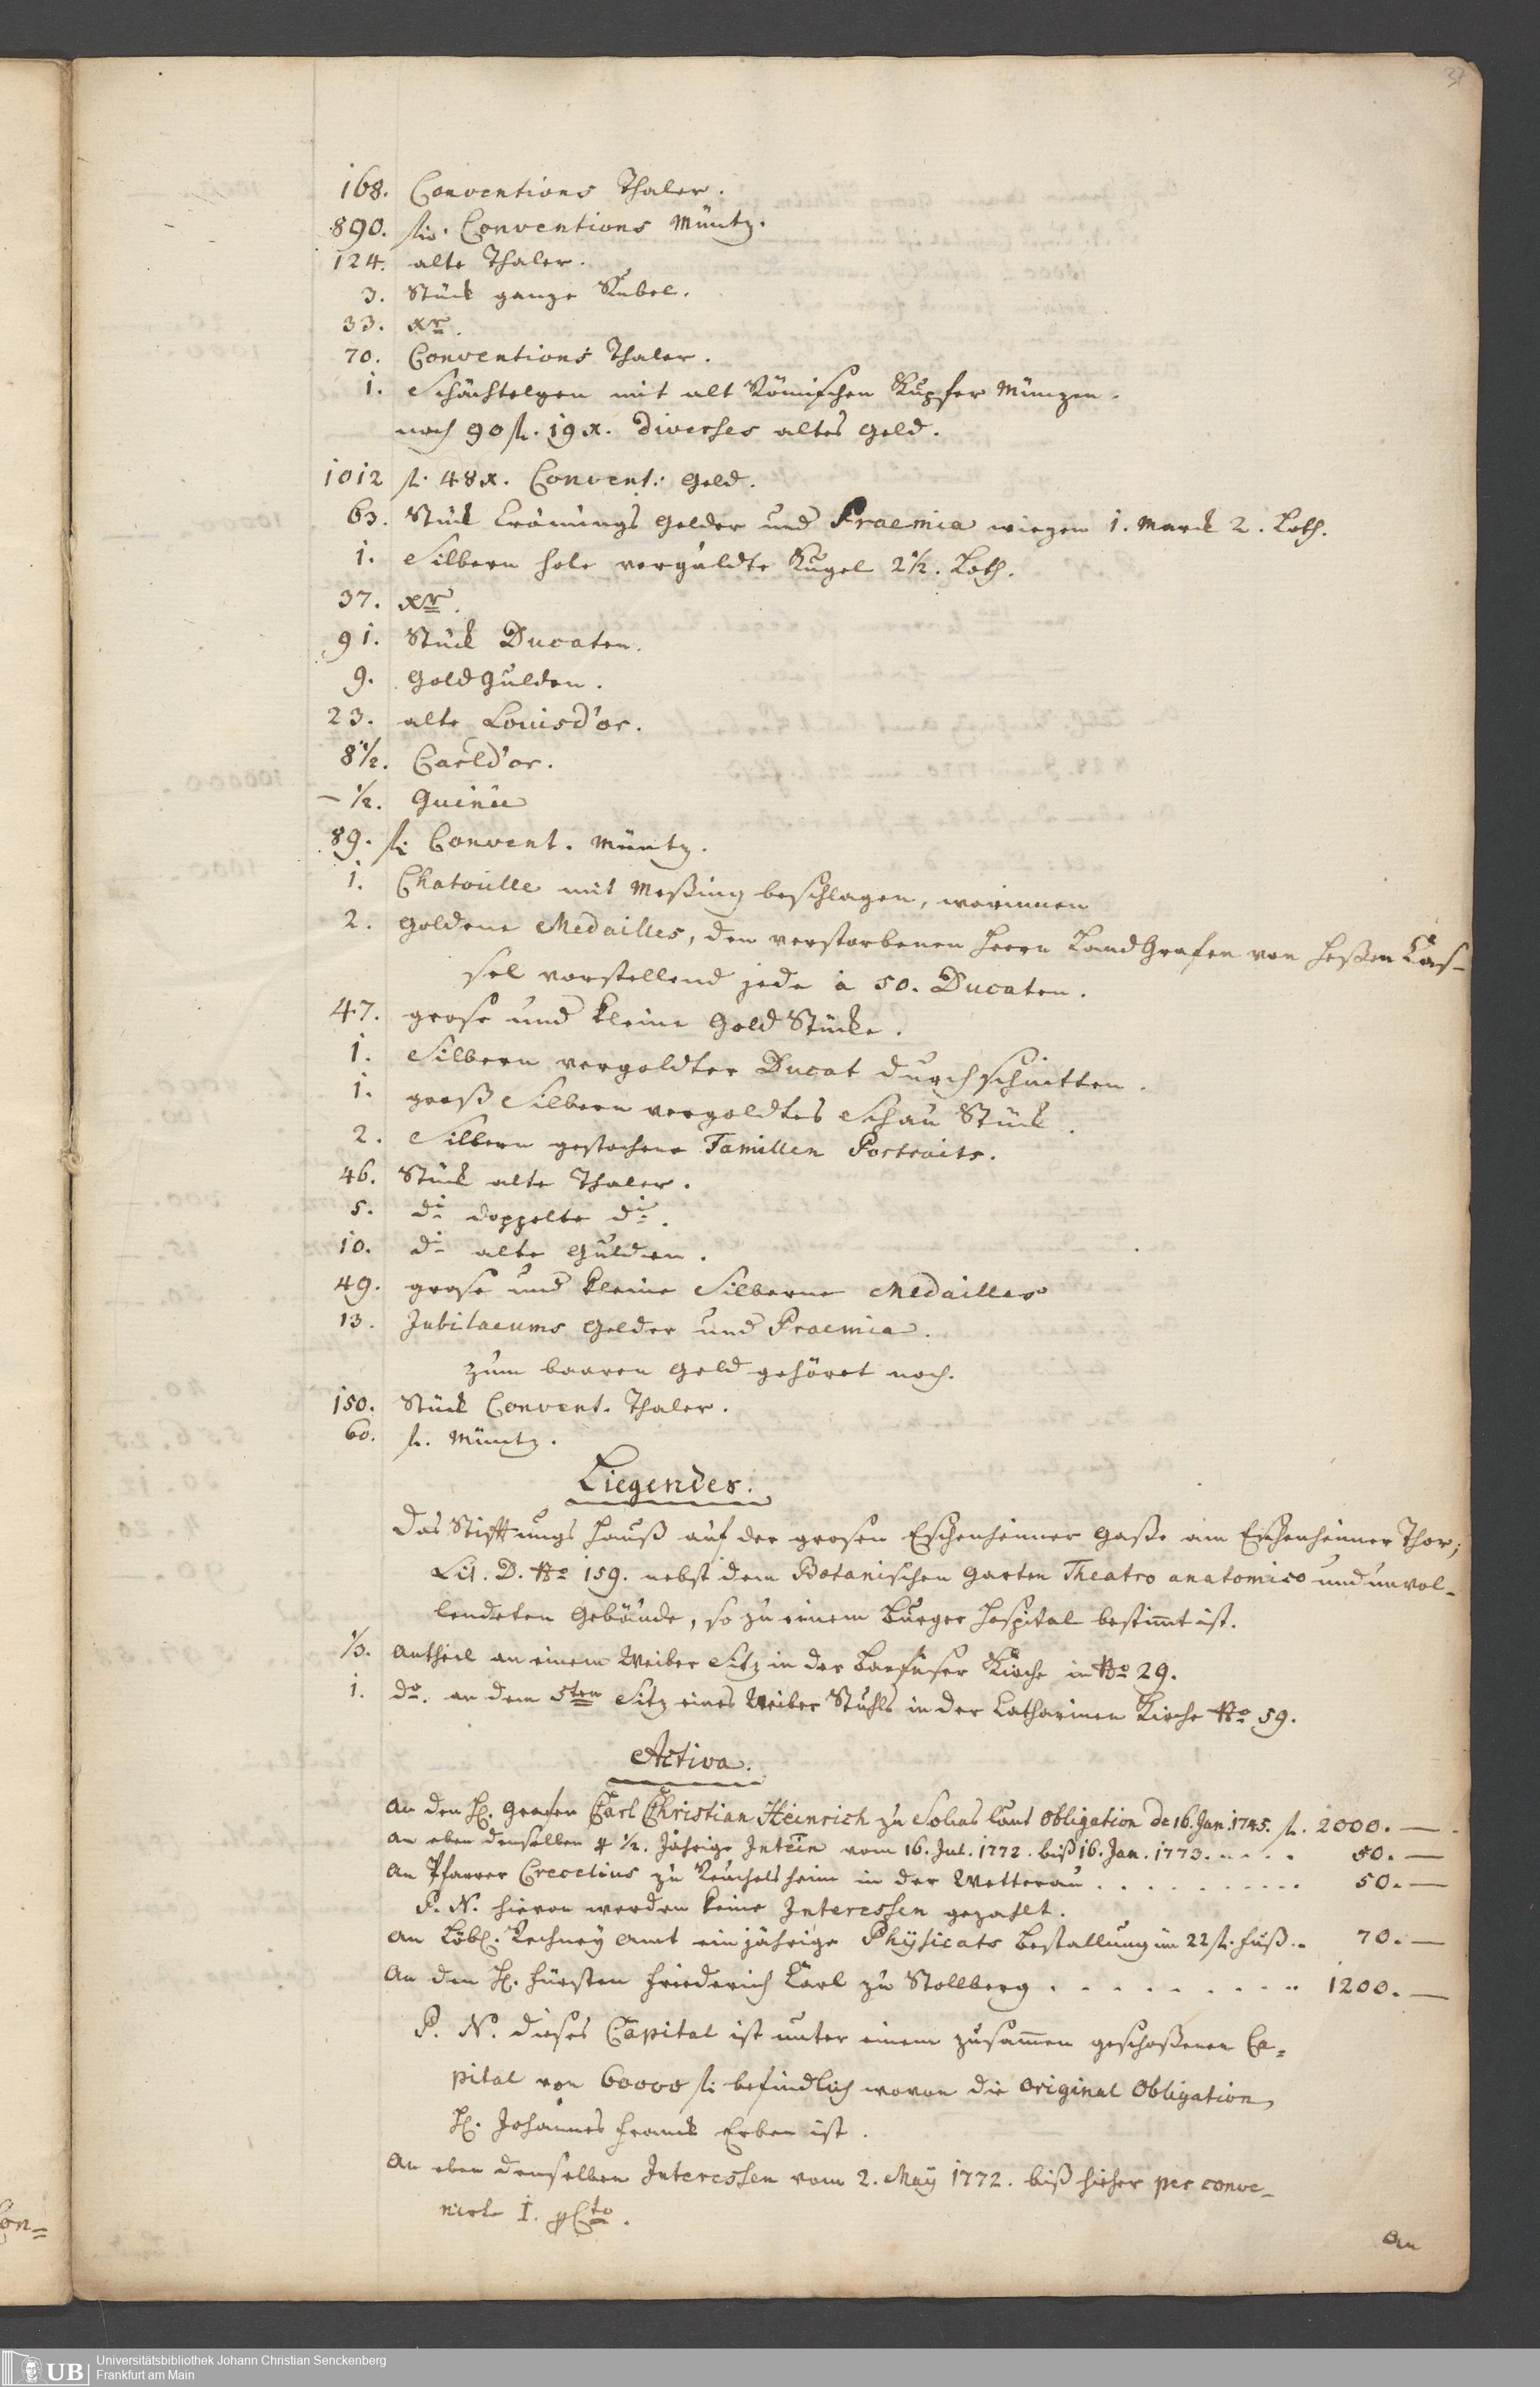 37
168. Conventions Thaler.
890. fl. Conventions Müntz.
124. alte Thaler.
3. Stück ganze Rubel.
33. xr.
70. Conventions Thaler.
1. Schächtelgen mit alt Römischen Kupfer Münzen.
noch 90 fl. 19 x. diverses altes Geld.
1012 fl. 48 x. Convent: Geld.
63. Stück Crönungs Gelder und Praemia wiegen 1. Marck 2. Loth.
1. Silbern hole vergüldte Kugel 2 1/2. Loth.
37. xr.
91. Stück Ducaten.
9. Goldgulden.
23. alte Louisd'or.
8 1/2. Carld'or.
– 1/2. Guinée
89. fl. Convent. Müntz.
1. Chatoulle mit Meßing beschlagen, worinnen
2. Goldene Medailles, den verstorbenen Herrn Land Grafen von Heßen Cas-
sel vorstellend jede à 50. Ducaten.
47. grose und kleine Gold Stücke.
1. Silbern vergoldter Ducat durchschnitten.
1. groß Silbern vergoldtes Schau Stück.
2. Silbern gestochene Famillen Portraits.
46. Stück alte Thaler.
5. do doppelte do.
10. do alte Gulden.
49. grose und kleine Silberne Medailles
13. Jubilaeums Gelder und Praemia.
zum baaren Geld gehöret noch.
150. Stück Convent. Thaler.
60. fl. Müntz.
Liegendes.
Das Stifftungs Hauß auf der grosen Eschenheimer Gaße am Eschenheimer Thor,
Lit. D. No 159. nebst dem Botanischen Garten Theatro anatomico und unvol-
lendeten Gebäude, so zu einem Burger Hospital bestimt ist.
1/3. Antheil an einem Weiber Sitz in der Barfüser Kirche in No 29.
1. do. an dem 5ten Sitz eines Weiber Stuhls in der Catharinen Kirche No 59.
Activa.
An den H. Grafen Carl Christian Heinrich zu Solms laut Obligation de 16. Jan. 1745. fl. 2000. —
An eben denselben p 1/2. Jährige Inteen vom 16. Jul. 1772. biß 16. Jan. 1773. . . . . 50. —
An Pfarrer Crecelius zu Reichelsheim in der Wetterau . . . . . . . . . 50. —
P. N. hievon werden keine Interessen gezahlt.
An Löbl. Rechney Amt ein jährige Physicats Bestallung im 22 fl. Fuß. . 70. —
An den H. Fürsten Friederich Carl zu Stollberg . . . . . . . . . 1200. —
P. N. dieses Capital ist unter einem zusamen geschoßenen Ca-
pital von 60000 fl. befindlich wovon die Original Obligation
H. Johannes Franck Erben ist.
An eben denselben Interessen vom 2. May 1772. biß hieher per conve-
nirte 1. pCto.
An
Con=
UB
Universitätsbibliothek Johann Christian Senckenberg
Frankfurt am Main